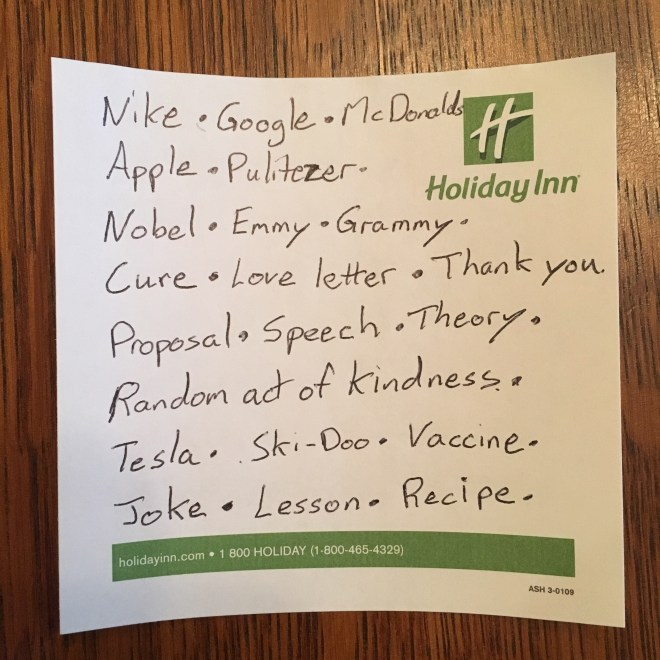 Nike • Google • McDonalds
Apple • Pulitezer •
Holiday Inn
Nobel • Emmy • Grammy •
Cure • Love letter • Thank you.
Proposal • Speech • Theory •
Random act of kindness •
Tesla • Ski-Doo • Vaccine •
Joke • Lesson • Recipe •
holidayinn.com • 1 800 HOLIDAY (1-800-465-4329)
ASH 3-0109